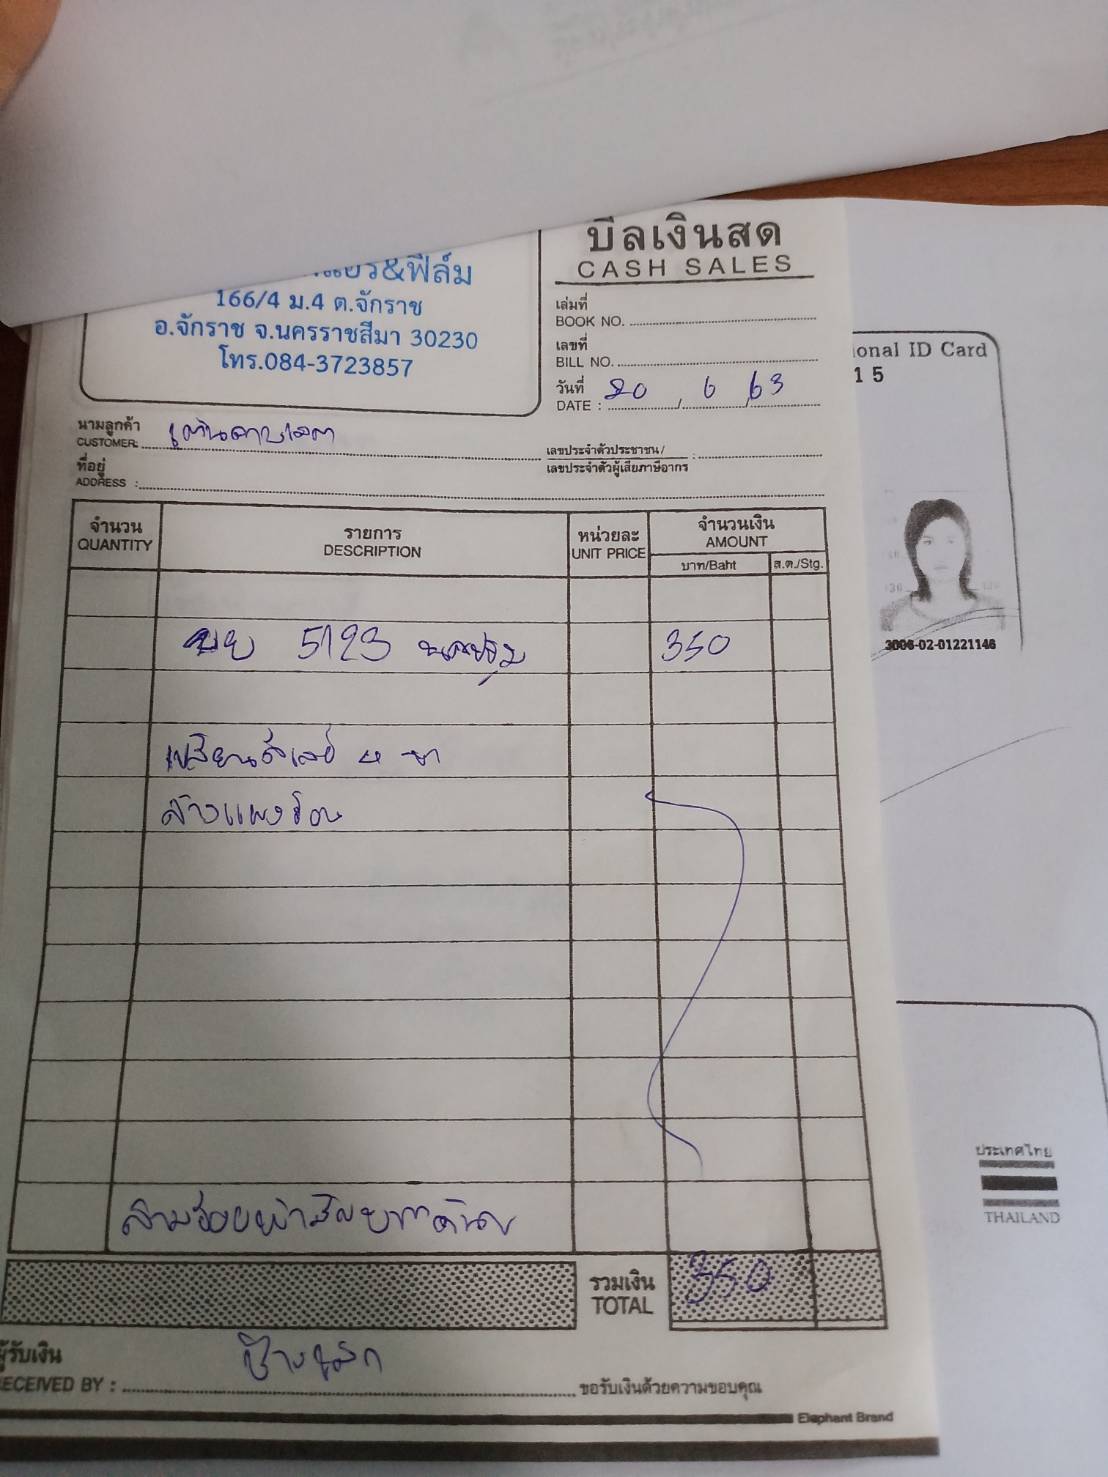 แอร์&ฟิล์ม
166/4 ม.4 ต.จักราช
อ.จักราช จ.นครราชสีมา 30230
โทร.084-3723857
บิลเงินสด
CASH SALES
เล่มที่
BOOK NO.
เลขที่
BILL NO.
วันที่ 20 6 63
DATE : / /
นามลูกค้า
CUSTOMER:
ที่อยู่
ADDRESS :
เลขประจำตัวประชาชน/ :
เลขประจำตัวผู้เสียภาษีอากร
จำนวน รายการ หน่วยละ จำนวนเงิน
QUANTITY DESCRIPTION UNIT PRICE AMOUNT
บาท/Baht ส.ต./Stg.
5123 350
ล้างแผงร้อน
สามร้อยห้าสิบบาทถ้วน
รวมเงิน 350
TOTAL
ผู้รับเงิน
RECEIVED BY :
ขอรับเงินด้วยความขอบคุณ
Elephant Brand
onal ID Card
1 5
3006-02-01221146
ประเทศไทย
THAILAND